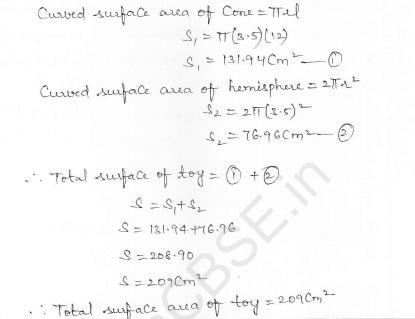 Curved surface area of Cone = πrl
S₁ = π(3.5)(12)
S₁ = 131.94 Cm² — ①
Curved surface area of hemisphere = 2πr²
S₂ = 2π(3.5)²
S₂ = 76.96 Cm² — ②
∴ Total surface of toy = ① + ②
S = S₁ + S₂
S = 131.94 + 76.96
S = 208.90
S = 209 Cm²
∴ Total surface area of toy = 209 Cm²
CBSE.in